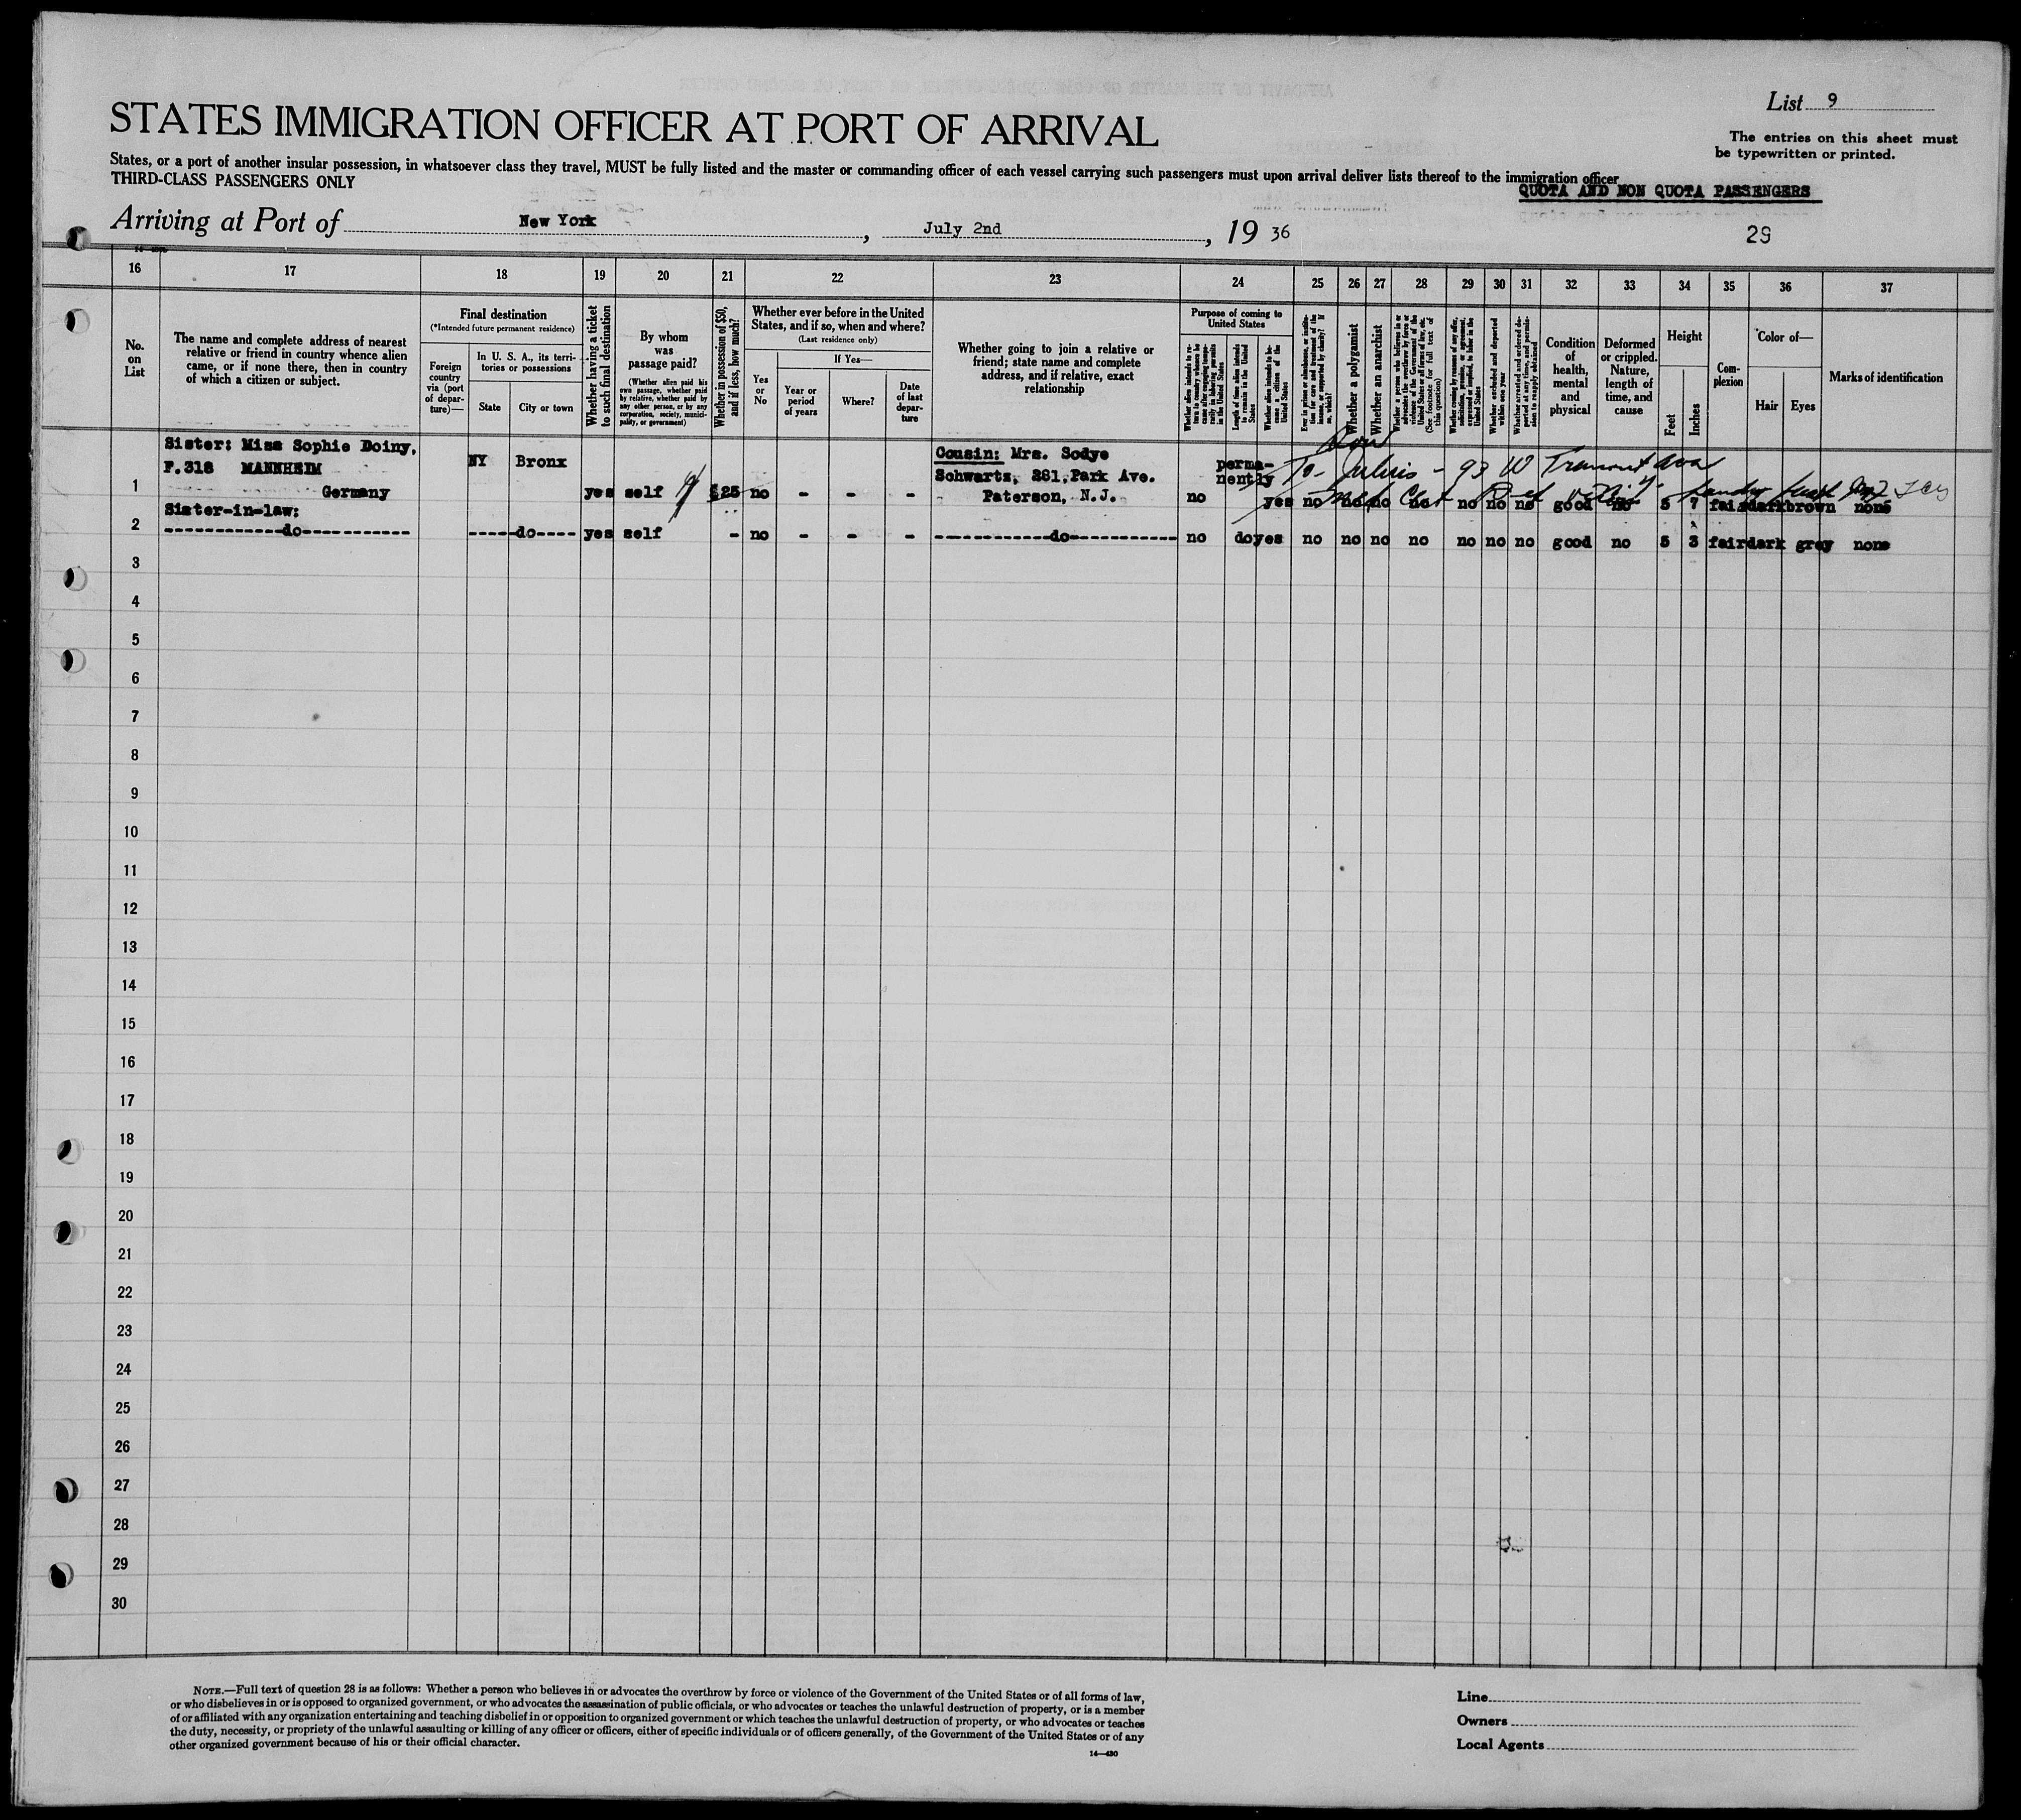 List 9
STATES IMMIGRATION OFFICER AT PORT OF ARRIVAL
The entries on this sheet must
be typewritten or printed.
States, or a port of another insular possession, in whatsoever class they travel, MUST be fully listed and the master or commanding officer of each vessel carrying such passengers must upon arrival deliver lists thereof to the immigration officer
THIRD-CLASS PASSENGERS ONLY
QUOTA AND NON QUOTA PASSENGERS
Arriving at Port of New York, July 2nd, 19 36
29
16 17 18 19 20 21 22 23 24 25 26 27 28 29 30 31 32 33 34 35 36 37
No.
on
List
The name and complete address of nearest
relative or friend in country whence alien
came, or if none there, then in country
of which a citizen or subject.
Final destination
(*Intended future permanent residence)
Foreign
country
via (port
of depar-
ture)—
In U. S. A., its terri-
tories or possessions
State
City or town
Whether having a ticket
to such final destination
By whom
was
passage paid?
(Whether alien paid his
own passage, whether paid
by relative, whether paid by
any other person, or by any
corporation, society, munici-
pality, or government)
Whether in possession of $50,
and if less, how much?
Whether ever before in the United
States, and if so, when and where?
(Last residence only)
Yes
or
No
If Yes—
Year or
period
of years
Where?
Date
of last
depar-
ture
Whether going to join a relative or
friend; state name and complete
address, and if relative, exact
relationship
Purpose of coming to
United States
Whether alien intends to re-
turn to country whence he
came after engaging tempo-
rarily in laboring pursuits
in the United States
Length of time alien intends
to remain in the United
States
Whether alien intends to be-
come a citizen of the
United States
Ever in prison or almshouse, or institu-
tion for care and treatment of the
insane, or supported by charity? If
so, which?
Whether a polygamist
Whether an anarchist
Whether a person who believes in or
advocates the overthrow by force or
violence of the Government of the
United States or all forms of law, etc.
(See footnote for full text of
this question)
Whether coming by reason of any offer,
solicitation, promise, or agreement,
expressed or implied, to labor in the
United States
Whether excluded and deported
within one year
Whether arrested and ordered de-
ported at any time, and permis-
sion to reapply obtained
Condition
of
health,
mental
and
physical
Deformed
or crippled.
Nature,
length of
time, and
cause
Height
Feet
Inches
Com-
plexion
Color of—
Hair
Eyes
Marks of identification
Sister: Miss Sophie Doiny,
F.318 MANNHEIM
Germany
1 NY Bronx yes self $25 no - - -
Cousin: Mrs. Sodye
Schwarts, 281, Park Ave.
Paterson, N.J.
no perma-
nently yes no no no no no no no good no 5 7 fair dark brown none
To- Julius - 93 W Tremont Ave
Sister-in-law:
2 ------------do----------- -----do---- yes self - no - - - ------------do------------ no do yes no no no no no no no good no 5 3 fair dark grey none
3
4
5
6
7
8
9
10
11
12
13
14
15
16
17
18
19
20
21
22
23
24
25
26
27
28
29
30
NOTE.—Full text of question 28 is as follows: Whether a person who believes in or advocates the overthrow by force or violence of the Government of the United States or of all forms of law,
or who disbelieves in or is opposed to organized government, or who advocates the assassination of public officials, or who advocates or teaches the unlawful destruction of property, or is a member
of or affiliated with any organization entertaining and teaching disbelief in or opposition to organized government or which teaches the unlawful destruction of property, or who advocates or teaches
the duty, necessity, or propriety of the unlawful assaulting or killing of any officer or officers, either of specific individuals or of officers generally, of the Government of the United States or of any
other organized government because of his or their official character.
14—430
Line
Owners
Local Agents